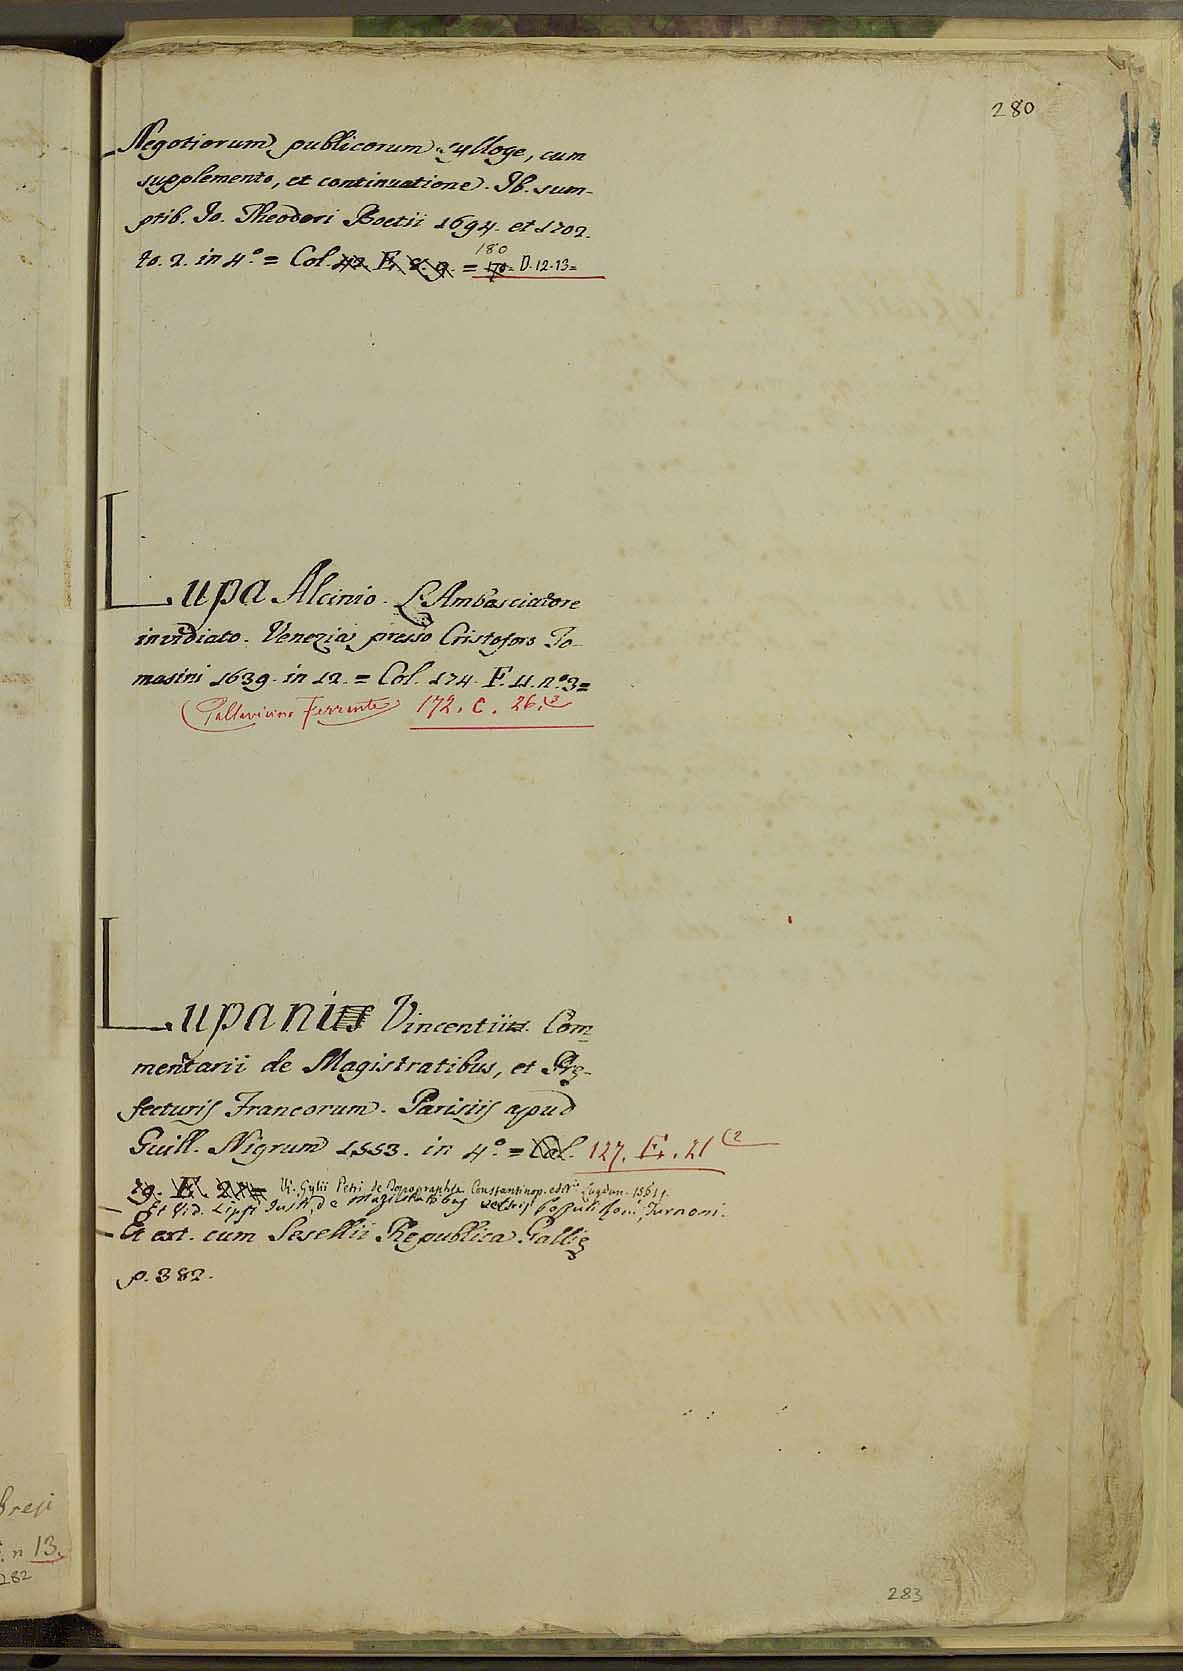 280
Negotiorum publicorum sylloge, cum
supplemento, et continuatione. Ib. sum-
ptib. Jo. Theodori Boetii 1694. et 1702.
to. 2. in 4.° = Col. 42. F. 8. 9. = 170 180 = D. 12. 13 =
Lupa Alcinio. L'Ambasciatore
invidiato. Venezia presso Cristoforo To-
masini 1639. in 12. = Col. 174. F. 11. n.° 3 =
(Pallavicino Ferrante) 172. C. 26.(3
Lupanus Vincentius. Com-
mentarii de Magistratibus, et Præ-
fecturis Francorum. Parisiis apud
Guill. Nigrum 1553. in 4.° = Col. 127. E. 21 (2
19. F. = Vi. Gylii Petri de Topographia Constantinop. edit. Lugdun. 1561.
Et Vid. Lipsi Justi, de Magistratibus veteris Populi Rom. Turnoni.
Et ext. cum Sesellii Republica Galliæ
p. 382.
283
Bresi
n 13.
282